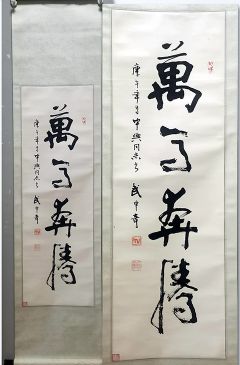 萬馬奔騰
庚午年 中興同志 武中奇
萬馬奔騰
庚午年 中興同志 武中奇